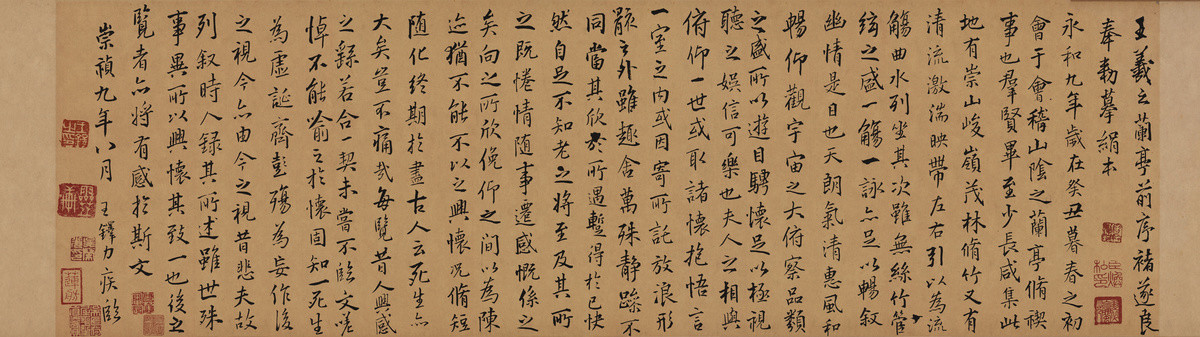 王羲之蘭亭前序褚遂良
奉勅摹絹本
永和九年歲在癸丑暮春之初
會于會稽山陰之蘭亭脩禊
事也羣賢畢至少長咸集此
地有崇山峻嶺茂林脩竹又有
清流激湍映帶左右引以為流
觴曲水列坐其次雖無絲竹管
絃之盛一觴一詠亦足以暢叙
幽情是日也天朗氣清惠風和
暢仰觀宇宙之大俯察品類
之盛所以遊目騁懷足以極視
聽之娛信可樂也夫人之相與
俯仰一世或取諸懷抱悟言
一室之內或因寄所託放浪形
骸之外雖趣舍萬殊静躁不
同當其欣於所遇暫得於己快
然自足不知老之將至及其所
之既惓情随事遷感慨係之
矣向之所欣俛仰之間以為陳
迹猶不能不以之興懷况脩短
随化終期於盡古人云死生亦
大矣豈不痛哉每覽昔人興感
之繇若合一契未嘗不臨文嗟
悼不能喻之於懷固知一死生
為虛誕齊彭殤為妄作後
之視今亦由今之視昔悲夫故
列叙時人録其所述雖世殊
事異所以興懷其致一也後之
覽者亦將有感於斯文
崇禎九年八月 王鐸力疾臨